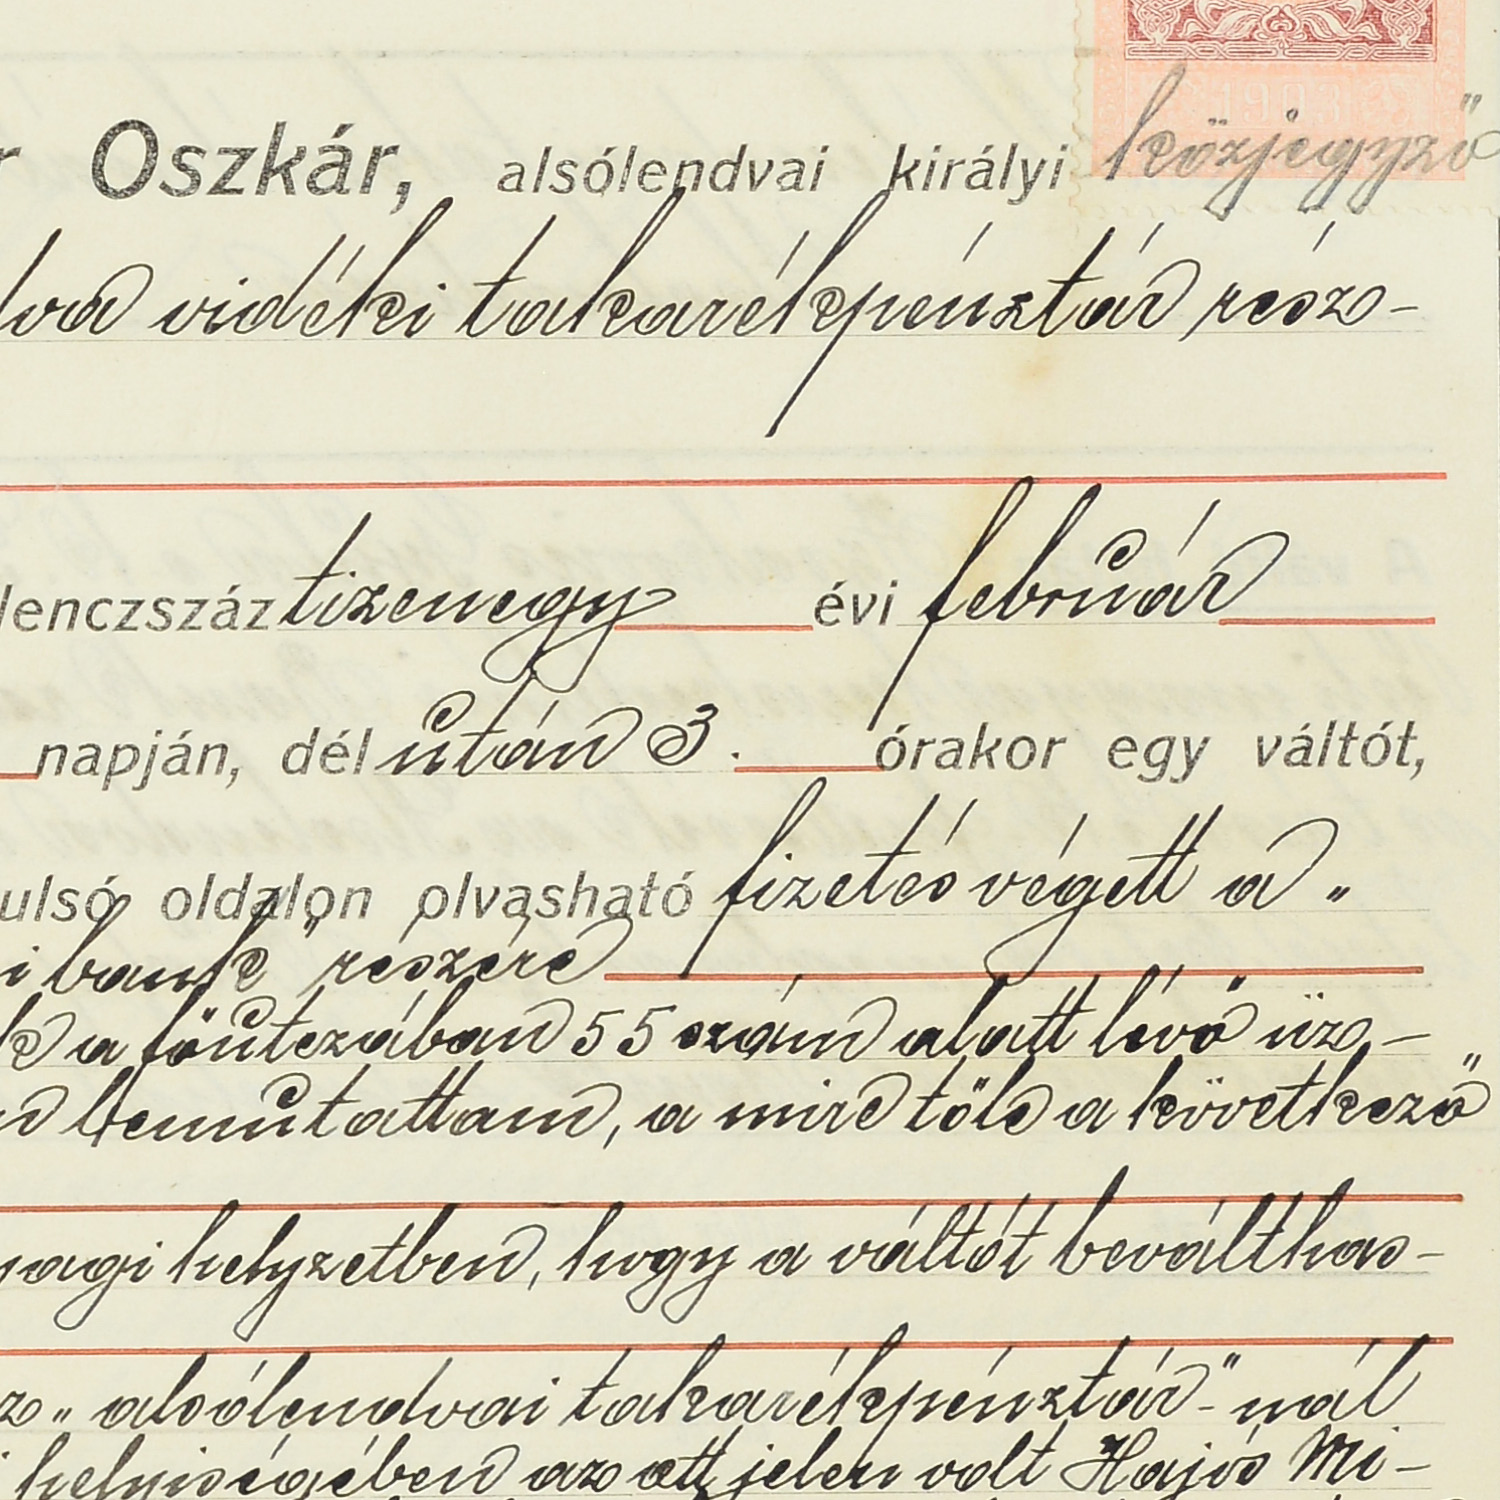 1903
r Oszkár, alsólendvai királyi közjegyző
lva vidéki takarékpénztár rész-
lenczszáz tizenegy évi február
napján, dél után 3. órakor egy váltót,
ulsó oldalon olvasható fizetés végett a „
i bank" részére
k a főutczában 55 szám alatt lévő üz-
n bemutattam, a mire tőle a következő
yagi helyzetben, hogy a váltót beválthas-
z „alsólendvai takarékpénztár"-nál
i helyiségében az ott jelen volt Hajós Mi-